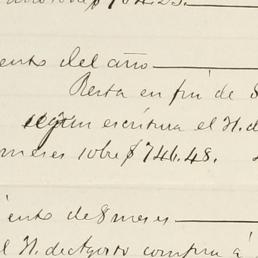 $764.25.
ento del año
Resta en fin de 8
según escritura el H. d
meses sobre $746.48.
iento de 8 meses
el H. de Agosto compra á